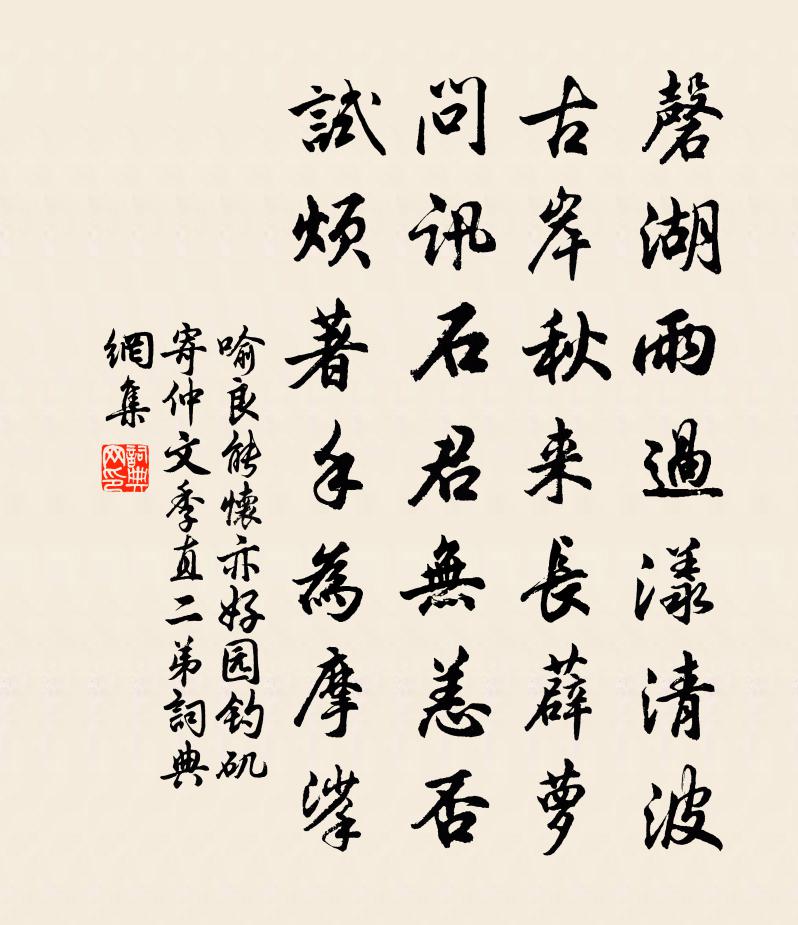 磬湖雨過漾清波
古岸秋来長薜萝
問訊石君無恙否
試煩著手為摩挲
喻良能懷亦好园钓矶
寄仲文季直二弟詞典
網集
詞典
网印